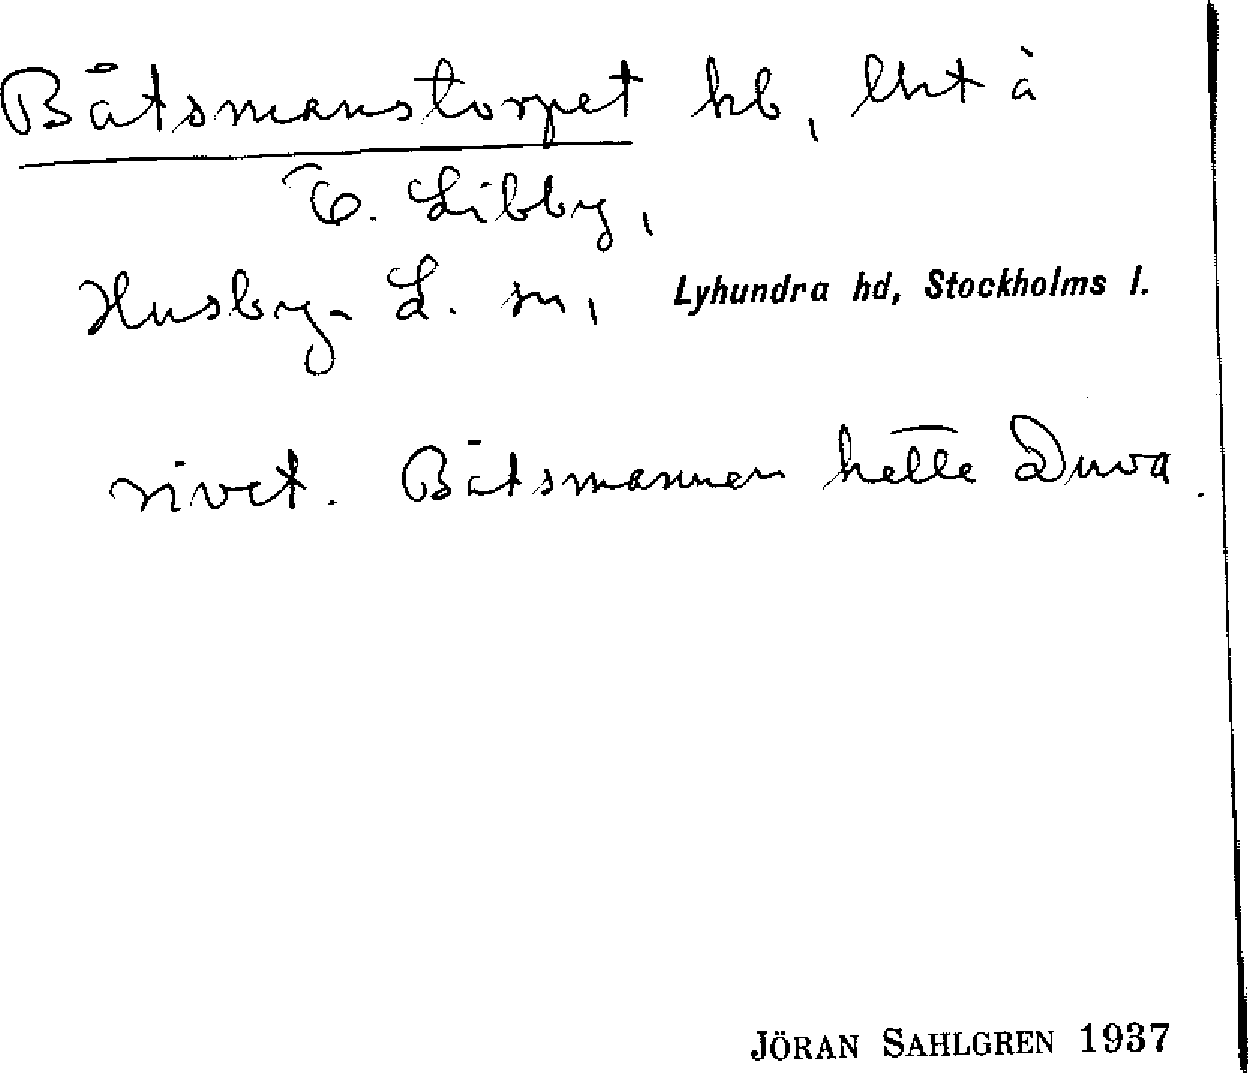 Båtsmanstorpet hb, lht å
Ö. Libby,
Husby-L. sn, Lyhundra hd, Stockholms l.
rivet. Båtsmannen hette Duva.
JÖRAN SAHLGREN 1937